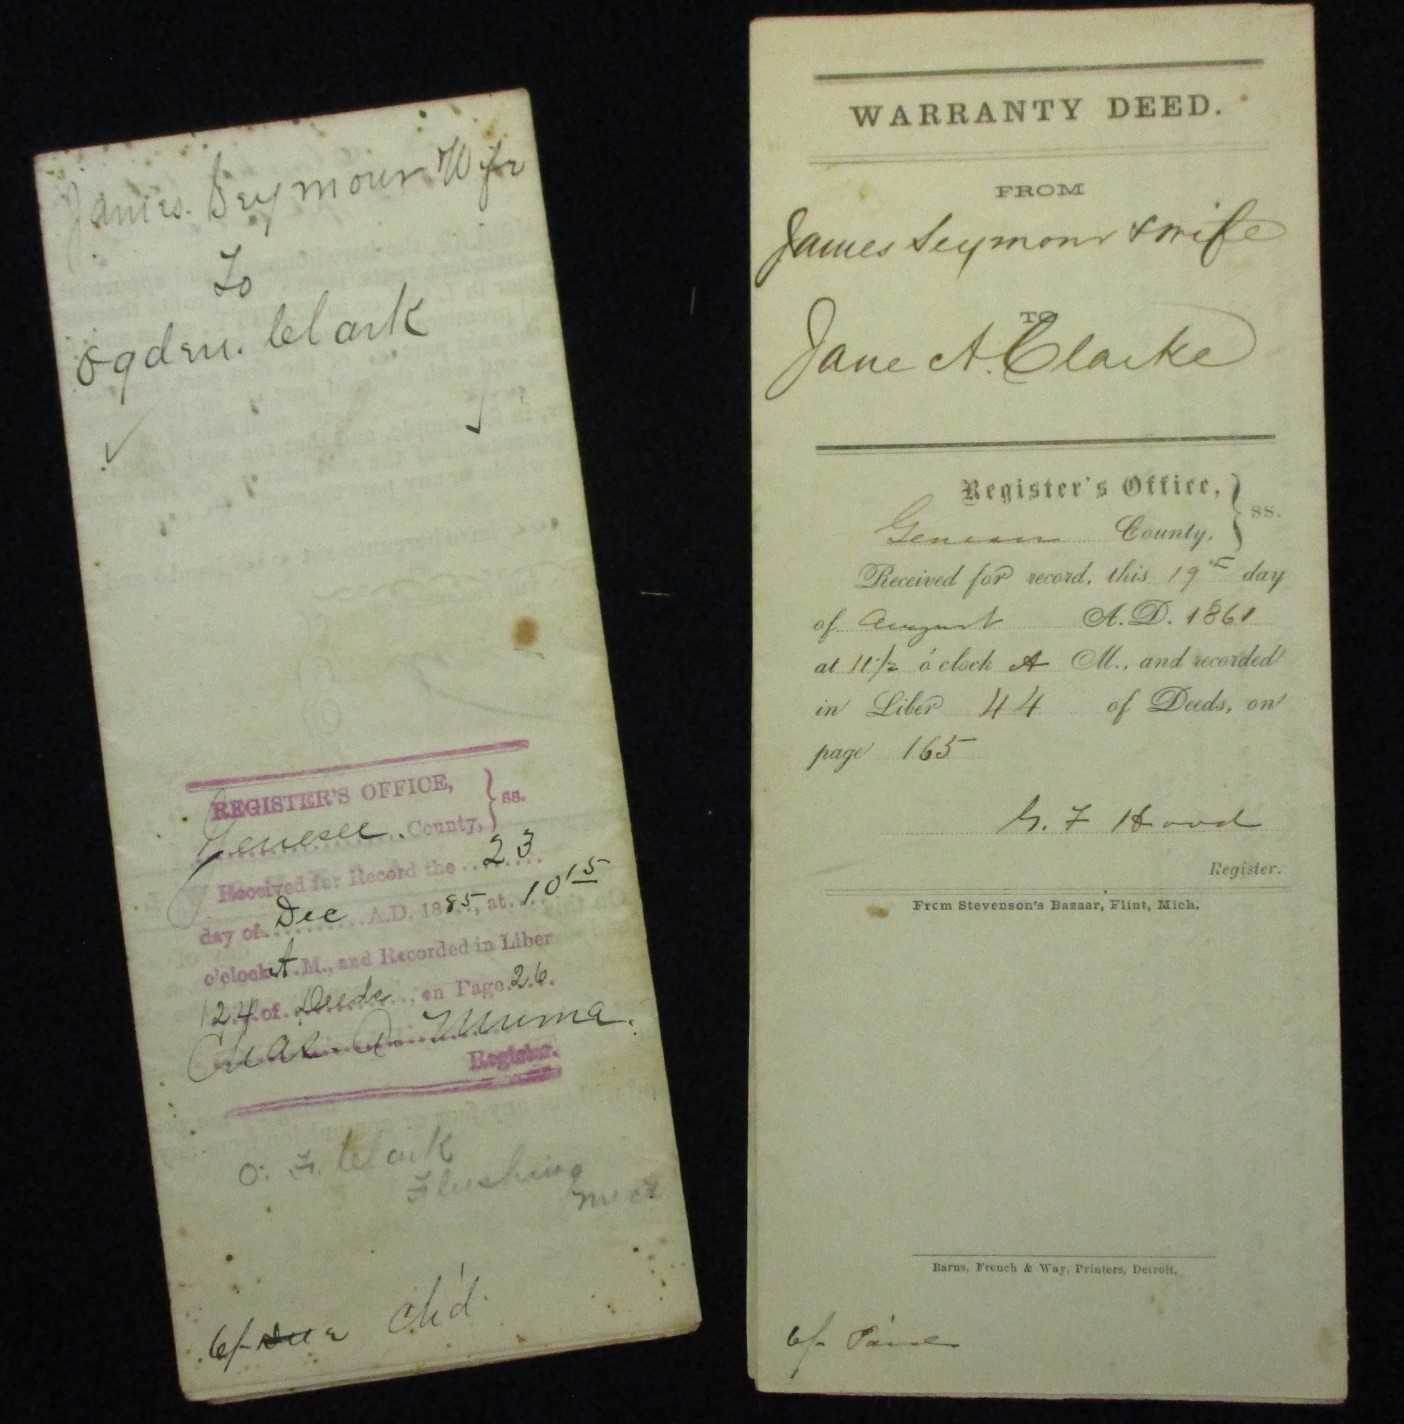 James. Seymour Wife
To
Ogden. Clark
REGISTER'S OFFICE,
Genesee County, } ss.
Received for Record the 23
day of Dec A.D. 1885, at 10 15
o'clock A. M., and Recorded in Liber
124 of Deeds, on Page 26.
Chas. A. Muma.
Register.
O. F. Clark
Flushing
Mich
6/ Due Ch'd.
WARRANTY DEED.
FROM
James Seymour & wife
TO
Jane A. Clarke
Register's Office,
Genesee County, } ss.
Received for record, this 19th day
of August A.D. 1861
at 11 1/2 o'clock A M., and recorded
in Liber 44 of Deeds, on
page 165
G. F Hood
Register.
From Stevenson's Bazaar, Flint, Mich.
Barns, French & Way, Printers, Detroit.
6/- Paid